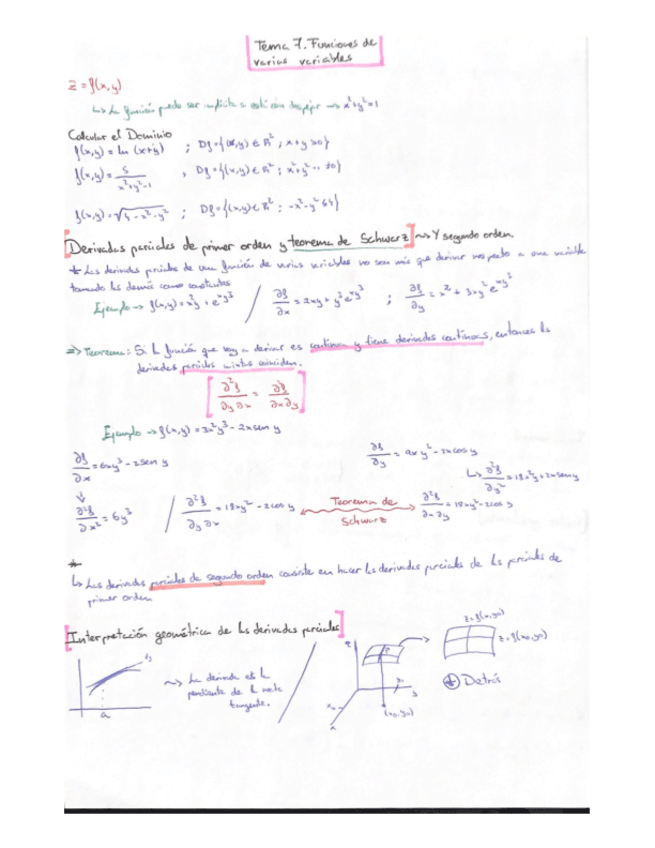 Tema 7. Funciones de
varias variables
z = f(x,y)
↳ La función puede ser implícita o estí sin despejar → x²+y²=1
Calcular el Dominio
f(x,y) = ln (x+y) ; Df = {(x,y) ∈ R² ; x+y>0}
f(x,y) = 5/(x²+y²-1) ; Df = {(x,y) ∈ R² ; x²+y²-1 ≠0}
f(x,y) = √(4-x²-y²) ; Df = {(x,y) ∈ R² ; -x²-y² ≤4}
Derivadas parciales de primer orden y teorema de Schwarz → Y segundo orden.
* Las derivadas parciales de una función de varias variables no son más que derivar respecto a una variable
tomando las demás como constantes
Ejemplo → f(x,y) = x²y + e^(xy³) / ∂f/∂x = 2xy + y³e^(xy³) ; ∂f/∂y = x² + 3xy²e^(xy³)
=> Teorema: Si la función que voy a derivar es continua y tiene derivadas continuas, entonces las
derivadas parciales mixtas coinciden.
[∂²f/∂y∂x = ∂²f/∂x∂y]
Ejemplo → f(x,y) = 3x²y³ - 2x sen y
∂f/∂x = 6xy³ - 2sen y
∂f/∂y = 9x y² - 2x cos y
↳ ∂²f/∂y² = 18x²y + 2x sen y
∂²f/∂x² = 6y³ / ∂²f/∂y∂x = 18xy² - 2cos y Teorema de Schwarz ∂²f/∂x∂y = 18xy² - 2cos y
*
↳ Las derivadas parciales de segundo orden consiste en hacer las derivadas parciales de las parciales de
primer orden
Interpretación geométrica de las derivadas parciales
a
→ La derivada es la
pendiente de la recta
tangente.
z
P
x₀
y
x
(x₀,y₀)
z = f(x,y₀)
z = f(x₀,y)
Detrás